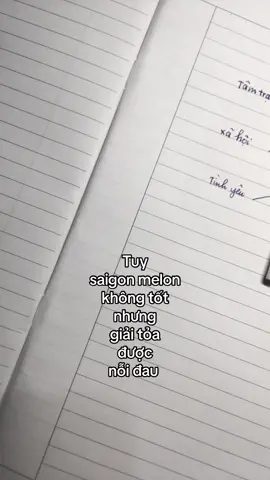 Tâm
xã hội
Tình yêu
Tuy
saigon melon
không tốt
nhưng
giải tỏa
được
nỗi đau